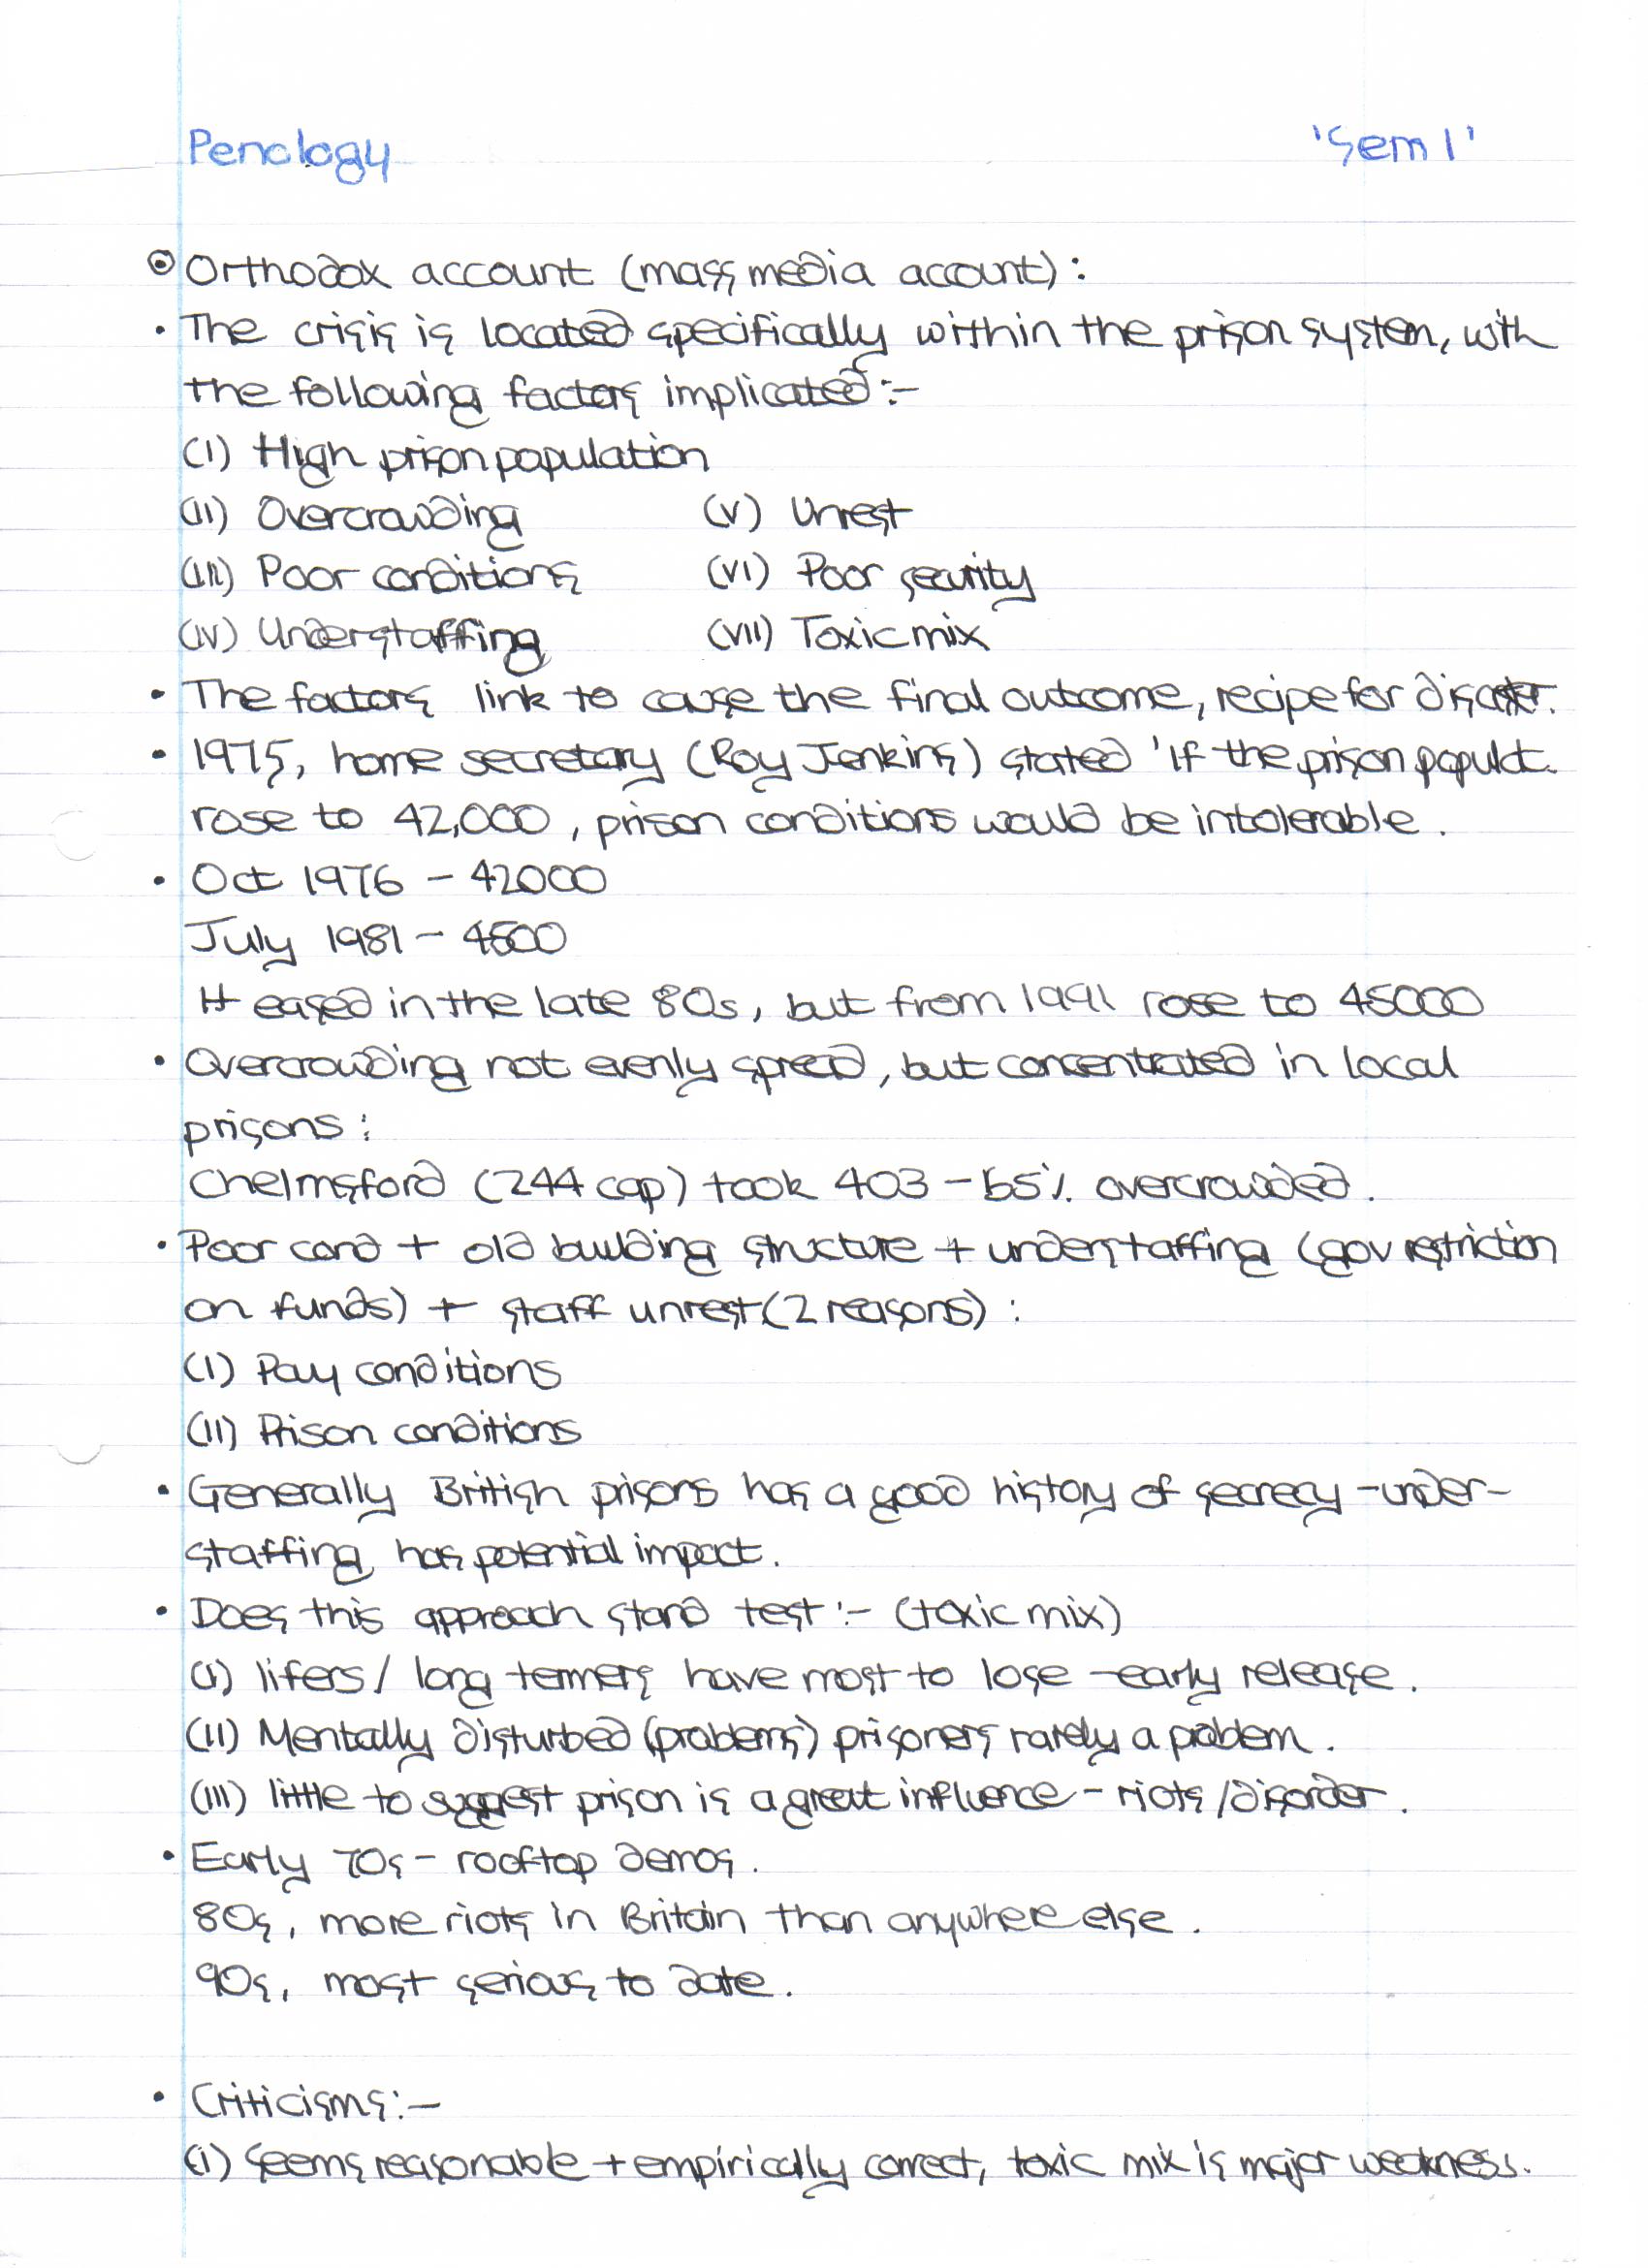 Penology 'Sem 1'
Orthodox account (mass media account):
• The crisis is located specifically within the prison system, with
the following factors implicated:-
(I) High prison population
(II) Overcrowding (V) Unrest
(III) Poor conditions (VI) Poor security
(IV) Understaffing (VII) Toxic mix
• The factors link to cause the final outcome, recipe for disaster.
• 1975, home secretary (Roy Jenkins) stated 'If the prison populat.
rose to 42,000, prison conditions would be intolerable.
• Oct 1976 - 42000
July 1981 - 4500
It eased in the late 80s, but from 1991 rose to 45000
• Overcrowding not evenly spread, but concentrated in local
prisons:
Chelmsford (244 cap) took 403 - 65% overcrowded.
• Poor cond + old building structure + understaffing (gov restriction
on funds) + staff unrest (2 reasons):
(I) Pay conditions
(II) Prison conditions
• Generally British prisons has a good history of secrecy - under-
staffing has potential impact.
• Does this approach stand test:- (toxic mix)
(I) lifers / long termers have most to lose - early release.
(II) Mentally disturbed (problems) prisoners rarely a problem.
(III) little to suggest prison is a great influence - riots / disorder.
• Early 70s - rooftop demos.
80s, more riots in Britain than anywhere else.
90s, most serious to date.
• Criticisms:-
(I) Seems reasonable + empirically correct, toxic mix is major weakness.